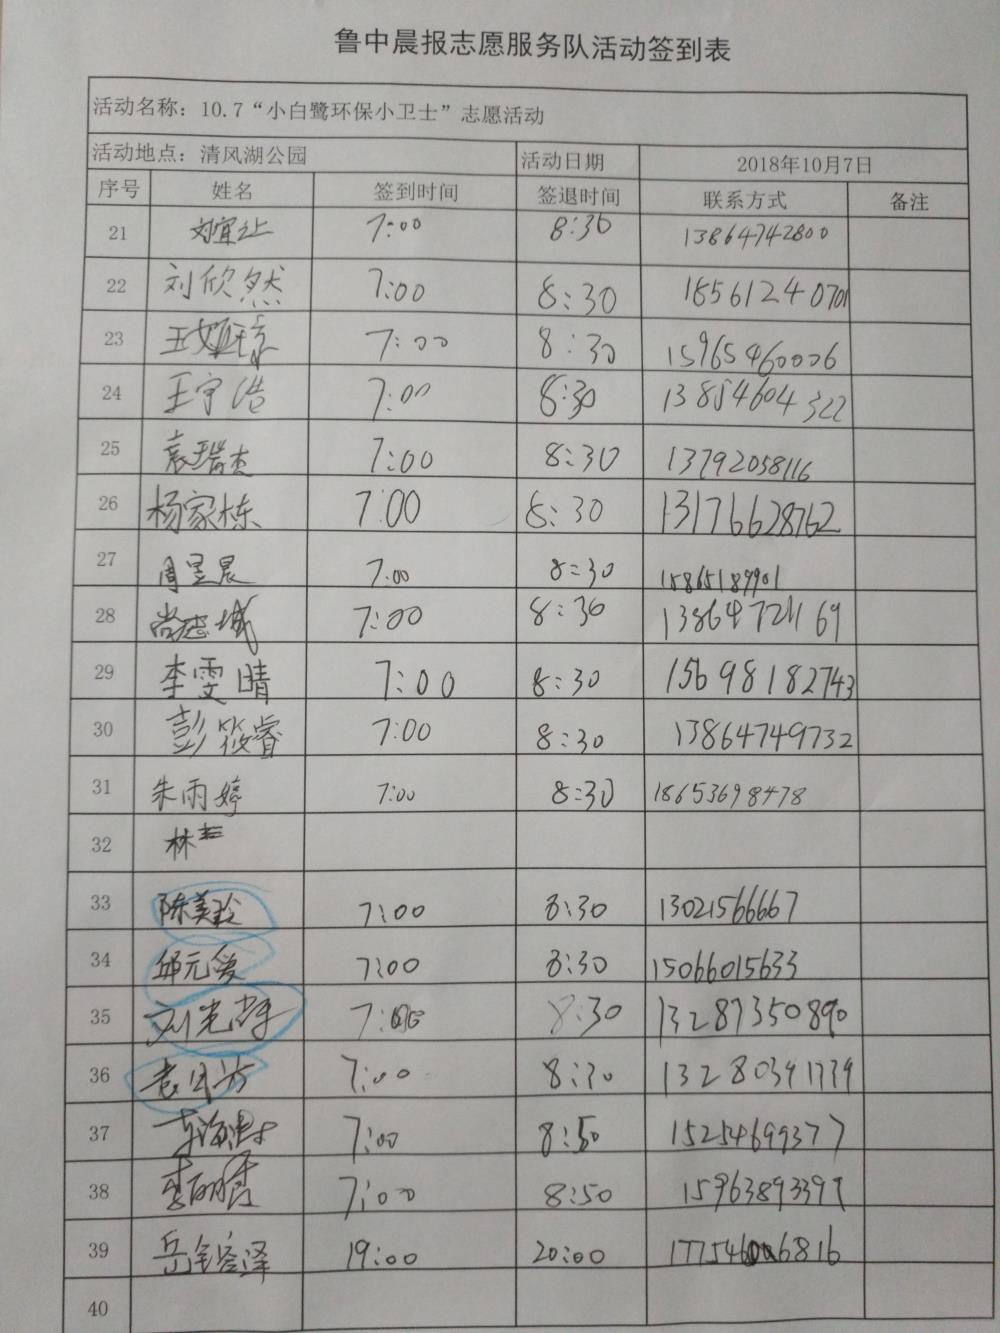 鲁中晨报志愿服务队活动签到表
活动名称：10.7“小白鹭环保小卫士”志愿活动
活动地点：清风湖公园 活动日期 2018年10月7日
序号 姓名 签到时间 签退时间 联系方式 备注
21 7:00 8:30 13864742800
22 刘欣然 7:00 8:30 18561240701
23 7:00 8:30 15965460006
24 王宇浩 7:00 8:30 13854604322
25 袁瑞杰 7:00 8:30 13792058116
26 杨家栋 7:00 8:30 13176628762
27 周昱晨 7:00 8:30 15865189901
28 尚志城 7:00 8:30
29 李雯晴 7:00 8:30 15698182743
30 彭筱睿 7:00 8:30 13864749732
31 朱雨婷 7:00 8:30 18653698478
32 林
33 陈美玲 7:00 8:30 13021566667
34 邱元爱 7:00 8:30 15066015633
35 7:00 8:30 13287350890
36 7:00 8:30
37 7:00 8:50 15254699377
38 7:00 8:50
39 19:00 20:00
40